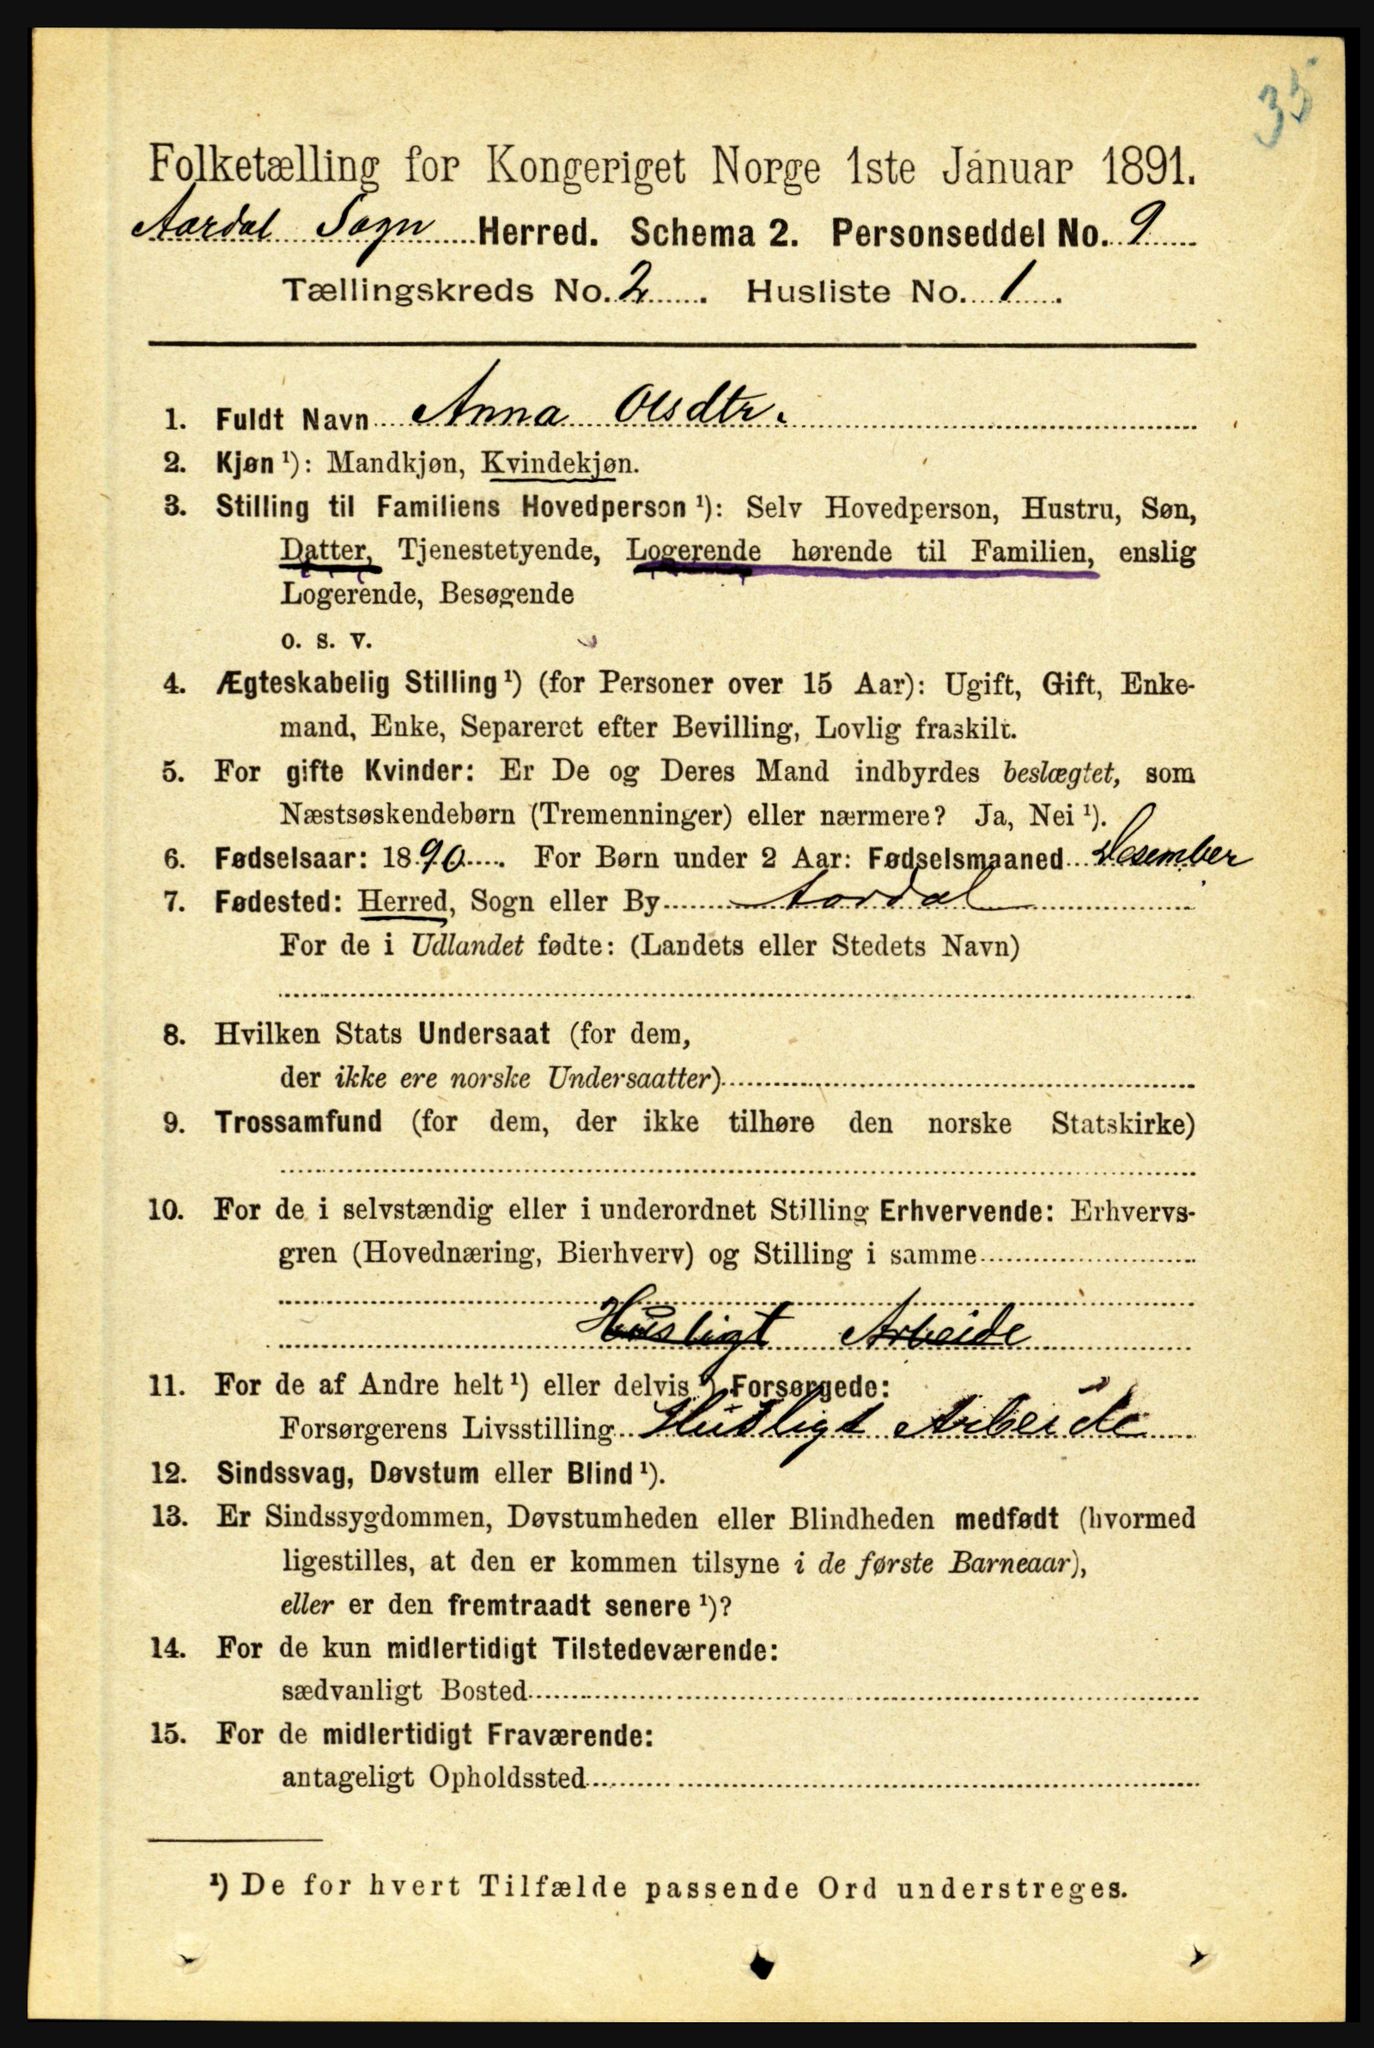 35
Folketælling for Kongeriget Norge 1ste Januar 1891.
Aardal Sogn Herred. Schema 2. Personseddel No. 9
Tællingskreds No. 2. Husliste No. 1.
1. Fuldt Navn Anna Olsdtr.
2. Kjøn ¹): Mandkjøn, Kvindekjøn.
3. Stilling til Familiens Hovedperson ¹): Selv Hovedperson, Hustru, Søn,
Datter, Tjenestetyende, Logerende hørende til Familien, enslig
Logerende, Besøgende
o. s. v.
4. Ægteskabelig Stilling ¹) (for Personer over 15 Aar): Ugift, Gift, Enke-
mand, Enke, Separeret efter Bevilling, Lovlig fraskilt.
5. For gifte Kvinder: Er De og Deres Mand indbyrdes beslægtet, som
Næstsøskendebørn (Tremenninger) eller nærmere? Ja, Nei ¹).
6. Fødselsaar: 1890. For Børn under 2 Aar: Fødselsmaaned Desember
7. Fødested: Herred, Sogn eller By Aardal
For de i Udlandet fødte: (Landets eller Stedets Navn)
8. Hvilken Stats Undersaat (for dem,
der ikke ere norske Undersaatter)
9. Trossamfund (for dem, der ikke tilhøre den norske Statskirke)
10. For de i selvstændig eller i underordnet Stilling Erhvervende: Erhvervs-
gren (Hovednæring, Bierhverv) og Stilling i samme
Husligt Arbeide
11. For de af Andre helt ¹) eller delvis ¹) Forsørgede:
Forsørgerens Livsstilling Husligt Arbeide
12. Sindssvag, Døvstum eller Blind ¹).
13. Er Sindssygdommen, Døvstumheden eller Blindheden medfødt (hvormed
ligestilles, at den er kommen tilsyne i de første Barneaar),
eller er den fremtraadt senere ¹)?
14. For de kun midlertidigt Tilstedeværende:
sædvanligt Bosted
15. For de midlertidigt Fraværende:
antageligt Opholdssted
¹) De for hvert Tilfælde passende Ord understreges.